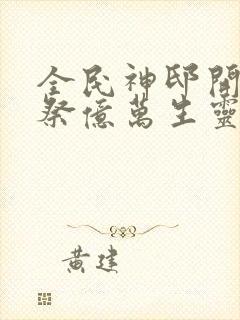 全民神邸開
祭億萬生靈
黃建